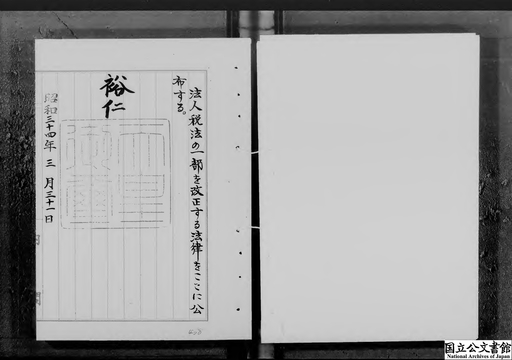 法人税法の一部を改正する法律をここに公
布する。
裕仁
昭和三十四年三月三十一日
国立公文書館
National Archives of Japan